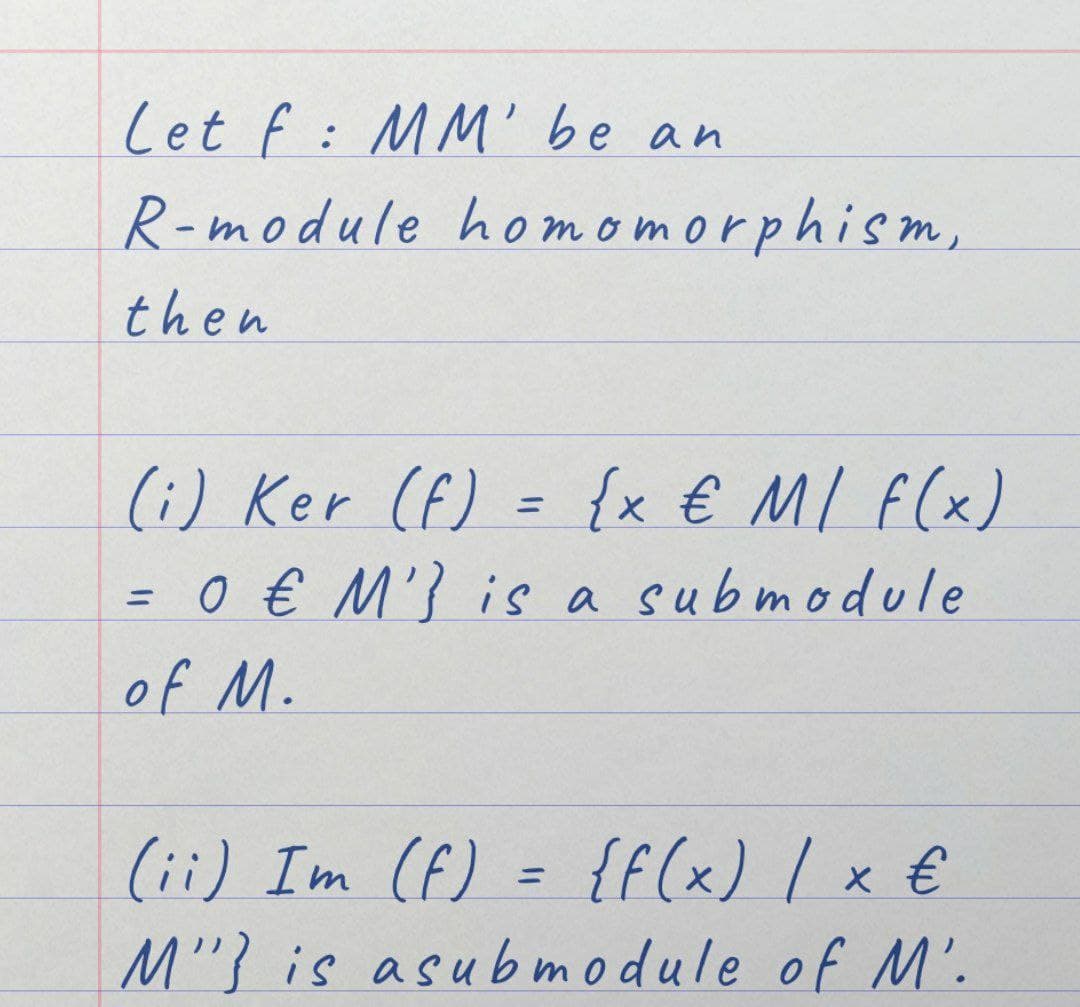 Let f : MM' be an
R-module homomorphism,
then
(i) Ker (f) = {x € M| f(x)
= 0 € M'} is a submodule
of M.
(ii) Im (f) = {f(x) | x €
M''} is asubmodule of M'.